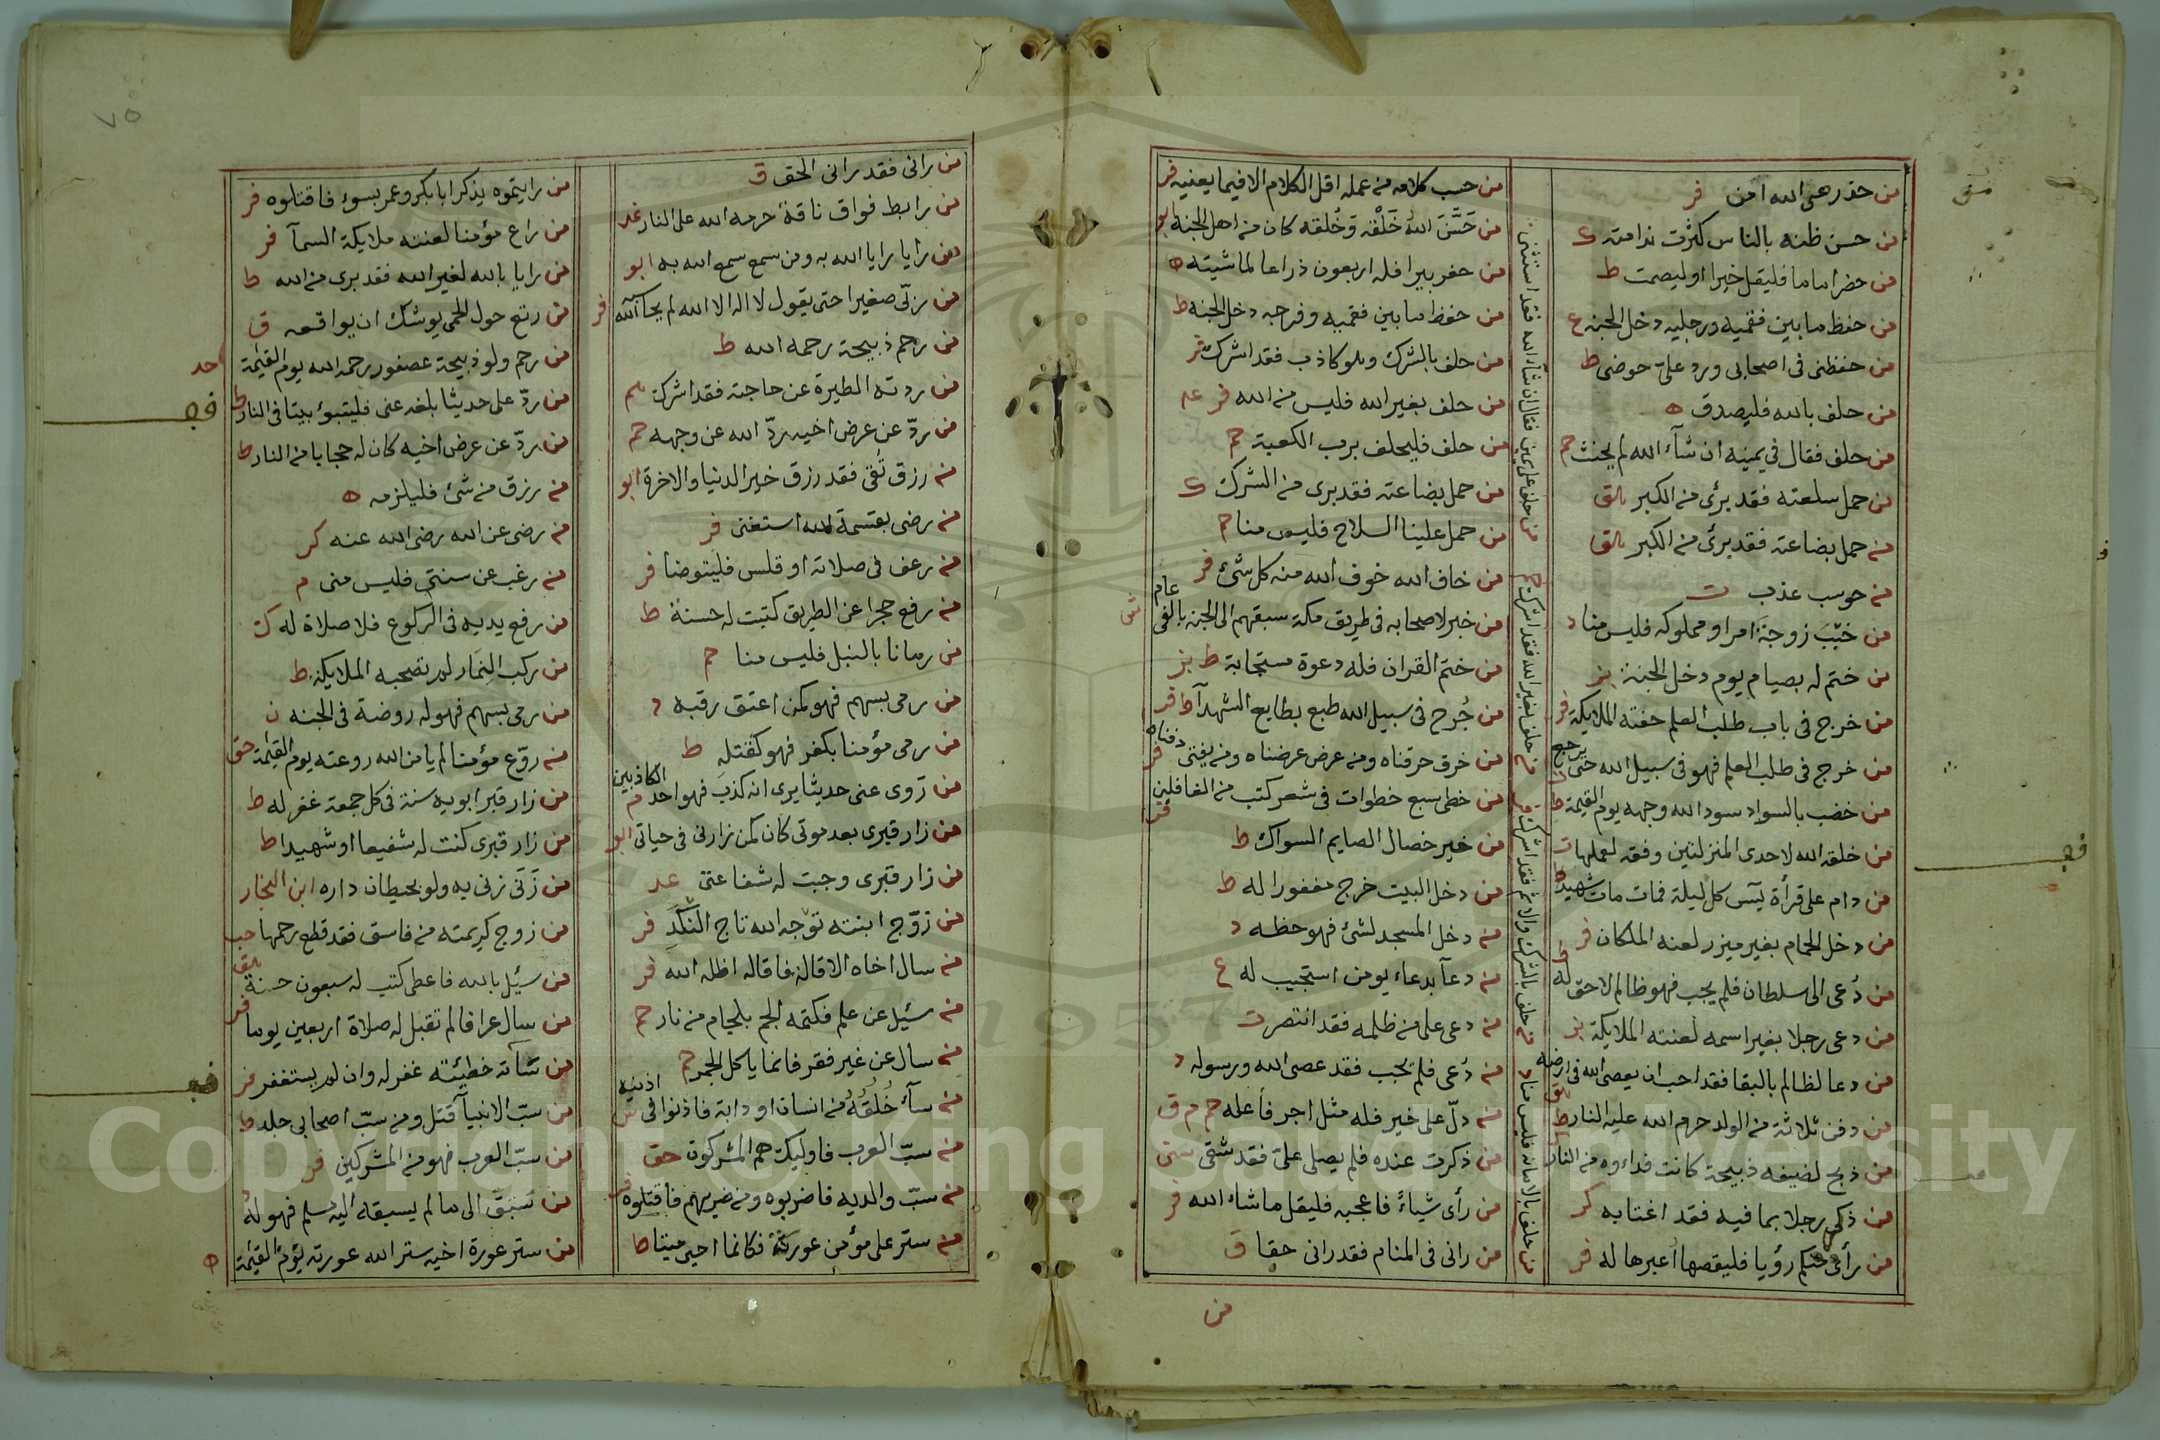 من حسن ظنه بالناس كثرت ندامته
من حضر اماما فليقل خيرا او ليصمت ط
من حفظ ما بين فقميه ورجليه دخل الجنة ع
من حفظنى فى اصحابى ورد علىّ حوضى ط
من حلف بالله فليصدق ه
من حلف فقال فى يمينه ان شآء الله لم يحنث حم
من حمل سلعته فقد برئ من الكبر
من حمل بضاعته فقد برئ من الكبر
من حوسب عذب ت
من خبّب زوجة امرا او مملوكه فليس منا د
من ختم له بصيام يوم دخل الجنة بز
من خرج فى باب طلب العلم حفته الملايكة فر
من خرج فى طلب العلم فهو فى سبيل الله حتى يرجع ت
من خضب بالسواد سود الله وجهه يوم القيمة ط
من خلقه الله لاحدى المنزلتين وفقه لعملها ت
من دام على قرأة يٓس كل ليلة فمات مات شهيدا ط
من دخل الحمام بغير ميزر لعنه الملكان فر
من دُعى الى سلطان فلم يجب فهو ظالم لا حق له ط
من دعى رجلا بغير اسمه لعنته الملايكة
من دعا لظالم بالبقا فقد احب ان يعصى الله فى ارضه
من دفن ثلاثة من الولد حرم الله عليه النار ط
من ذبح لضيفه ذبيحة كانت فداءوه من النار
من ذكر رجلا بما فيه فقد اغتابه كر
من رأى منكم رؤيا فليقصها اعبرها له فر
من حلف على يمين فقال ان شآء الله فقد استثنى
من حلف بغير الله فقد اشرك حم
من حلف بالامانة فليس منا د
من حسب كلامه من عمله اقل الكلام الا فيما يعنيه فر
من حَسَّنَ اللهُ خَلْقَه وَخُلقه كان من اهل الجنة ابو
من حفر بيرا فله اربعون ذراعا لماشيته ه
من حفظ ما بين فقميه وفرجه دخل الجنة ط
من حلف بالشرك وهو كاذب فقد اشرك فر
من حلف بغير الله فليس من الله فر عد
من حلف فليحلف برب الكعبة حم
من حمل بضاعته فقد برى من الشرك
من حمل علينا السلاح فليس منا حم
من خاف الله خوف الله منه كل شئ فر
من خبر لاصحابه فى طريق مكة سبقهم الى الجنة بالفى عام
من ختم القران فله دعوة مستجابة ط بز
من جُرح فى سبيل الله طبع بطابع الشهدآ ط فر
من خرق حرقناه ومن عرض عرضناه ومن يفتى دفناه فر
من خطى سبع خطوات فى شعر كتب من الغافلين
من خير خصال الصايم السواك ط
من دخل البيت خرج مغفورا له ط
من دخل المسجد لشئ فهو حظه د
من دعآ بدعاء يومن استجيب له ع
من دعى على من ظلمه فقد انتصر ت
من دُعى فلم يُجب فقد عصى الله ورسوله د
من دلّ على خير فله مثل اجر فاعله حم م ق
من ذكرت عنده فلم يصلى علىّ فقد شقى سنى
من رأى شيأً فاعجبه فليقل ما شاء الله فر
من رانى فى المنام فقد رانى حقا ق
من
٧٥
من رانى فقد رانى الحق ق
من رابط فواق ناقة حرمه الله على النار عد
من رايا رايا الله به ومن سمع سمع الله به ابو
من ربّى صغيرا حتى يقول لا اله الا الله لم يحاسبه الله فر
من رحم ذبيحة رحمه الله ط
من ردته الطيرة عن حاجته فقد اشرك
من ردّ عن عرض اخيه ردّ الله عن وجهه حم
من رزق تُقى فقد رزق خير الدنيا والاخرة ابو
من رضى بقسمة الله استغنى فر
من رعف فى صلاته او قلس فليتوضا فر
من رفع حجرا عن الطريق كتبت له حسنة ط
من رمانا بالنبل فليس منا حم
من رمى بسهم فهو كمن اعتق رقبه د
من رمى مؤمنا بكفر فهو كقتله ط
من رَوى عنى حديثا يرى انه كذب فهو احد الكاذبين م
من زار قبرى بعد موتى كان كمن زارنى فى حياتى ابو
من زار قبرى وجبت له شفاعتى عد
من زوّج ابنته توّجه الله تاج الملك فر
من سال اخاه الاقالة فاقاله اظله الله فر
من سئيل عن علم فكتمه الجم بلجام من نار حم
من سأل عن غير فقر فانما ياكل الجمر حم
من سآء خُلُقُهُ من انسان او دابة فاذنوا فى اذنيه
من سبّ العرب فاوليك هم المشركون حق
من سبّ والديه فاضربوه ومن ضربهم فاقتلوه فر
من ستر على مؤمن عورة فكانما احيى ميتا ط
من رايتموه يذكر ابا بكر وعمر بسوء فاقتلوه فر
من راع مؤمنا لعنته ملايكة السمآ فر
من رايا بالله لغير الله فقد برى من الله ط
من رتع حول الحمى يوشك ان يواقعه ق
من رحم ولو ذبيحة عصفور رحمه الله يوم القيٰمة خد
من ردّ على حديثا بلغه عنى فليتبوء بيتا فى النار ط
من ردّ عن عرض اخيه كان له حجابا من النار ط
من رزق من شئ فليلزمه ه
من رضى عن الله رضى الله عنه كر
من رغب عن سنتى فليس منى م
من رفع يديه فى الركوع فلا صلاة له ك
من ركب النمار لم تصحبه الملايكة ط
من رمى بسهم فهو له روضة فى الجنه ن
من روّع مؤمنا لم يامن الله روعته يوم القيٰمة حق
من زار قبر ابويه سنة فى كل جمعة غفر له ط
من زار قبرى كنت له شفيعا او شهيدا ط
من زَنَى زنى به ولو بحيطان داره ابن النجار
من زوج كريمته من فاسق فقد قطع رحمها حب
من سيئل بالله فاعطى كتب له سبعون حسنة
من سال عرافا لم تقبل له صلاة اربعين يوما
من سآته خطيئته غفر له وان لم يستغفر فر
من سبّ الانبيآ قُتل ومن سبّ اصحابى جلد ط
من سبّ العرب فهو من المشركين فر
من سَبَقَ الى ما لم يسبقه اليه مسلم فهو له
من ستر عورة اخيه ستر الله عورته يوم القيٰمة ه
Copyright © King Saud University
1957